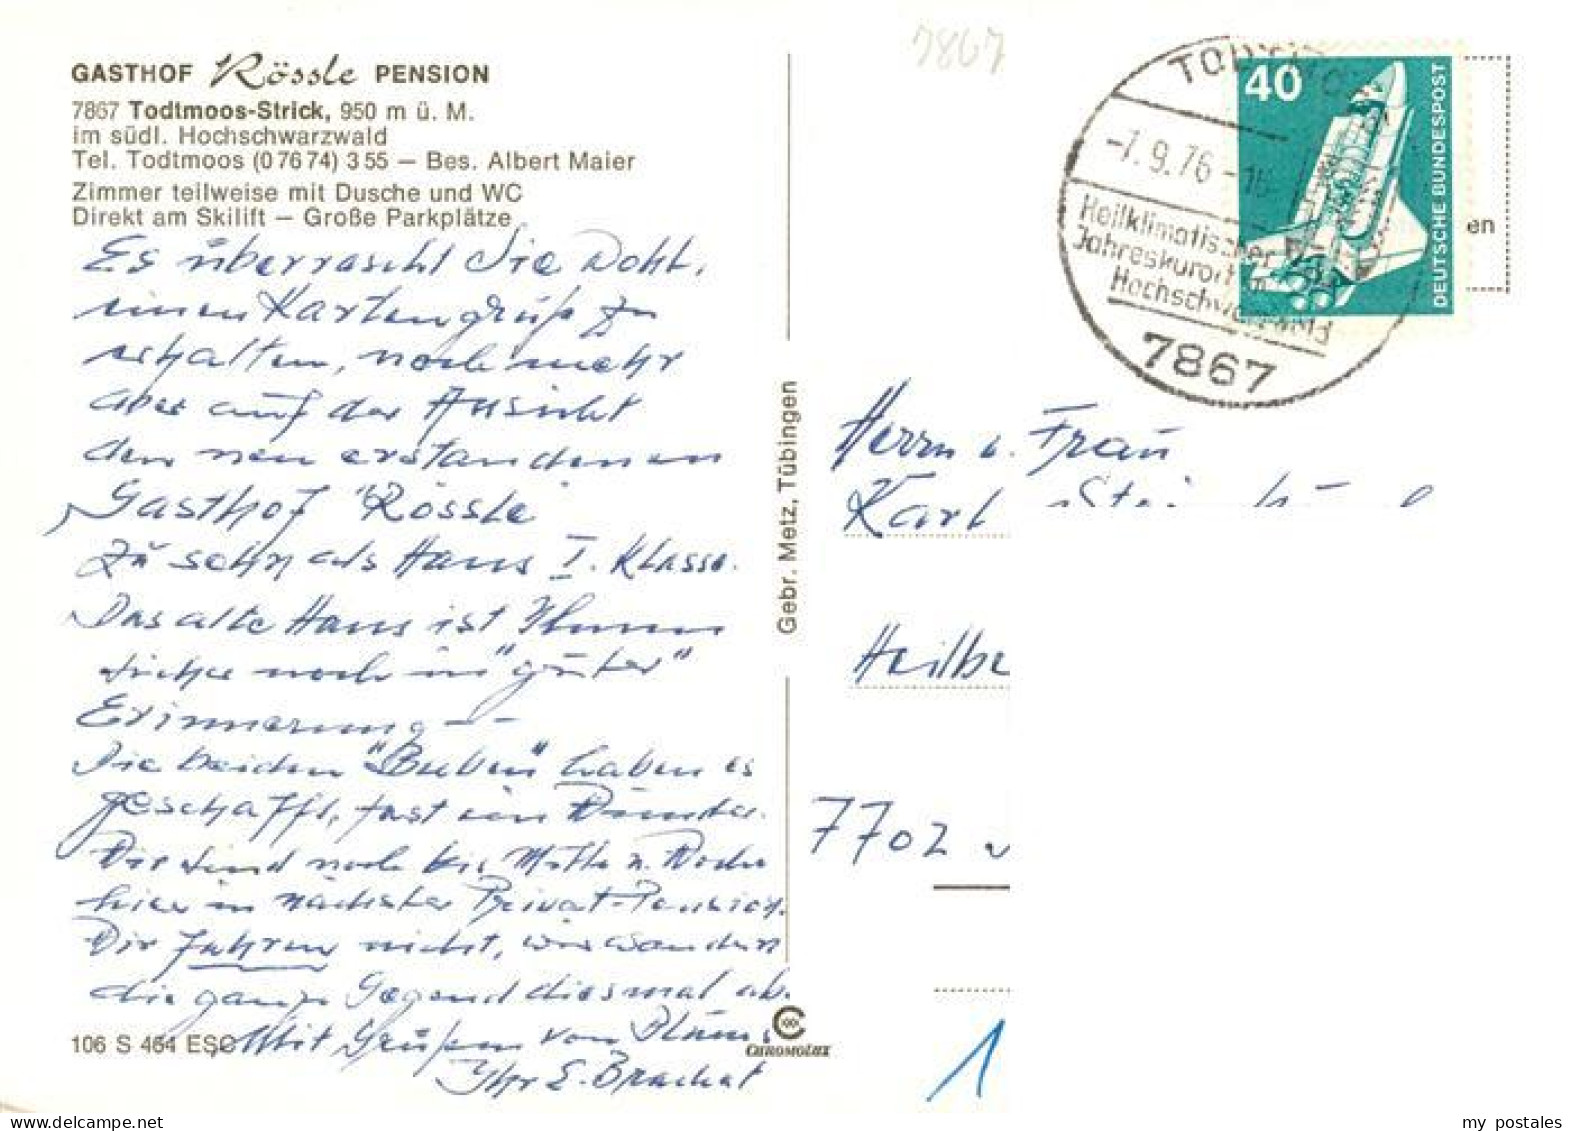 GASTHOF Rössle PENSION
7867 Todtmoos-Strick, 950 m ü. M.
im südl. Hochschwarzwald
Tel. Todtmoos (0 76 74) 3 55 — Bes. Albert Maier
Zimmer teilweise mit Dusche und WC
Direkt am Skilift — Große Parkplätze
Es überrascht Sie wohl,
einen Kartengruß zu
erhalten, noch mehr
aber auf der Ansicht
den neu erstandenen
Gasthof "Rössle"
zu sehn als Haus I. Klasse.
Das alte Haus ist Ihnen
sicher noch in "guter"
Erinnerung —
Die beiden "Buben" haben es
geschafft, fast ein Wunder.
Wir sind noch bis Mitte n. Woche
hier in nächster Privat-Pension.
Wir fahren nicht, wir wandern
die ganze Gegend diesmal ab.
Mit Grüßen von
Ihr E. Brachat
106 S 464 ESC
CHROMOLUX
Gebr. Metz, Tübingen
7867
40
DEUTSCHE BUNDESPOST
-7.9.76-
Heilklimatischer
Jahreskurort
Hochschwarzwald
7867
en
Herrn u. Frau
Karl
Heilbe
7702
1
my postales